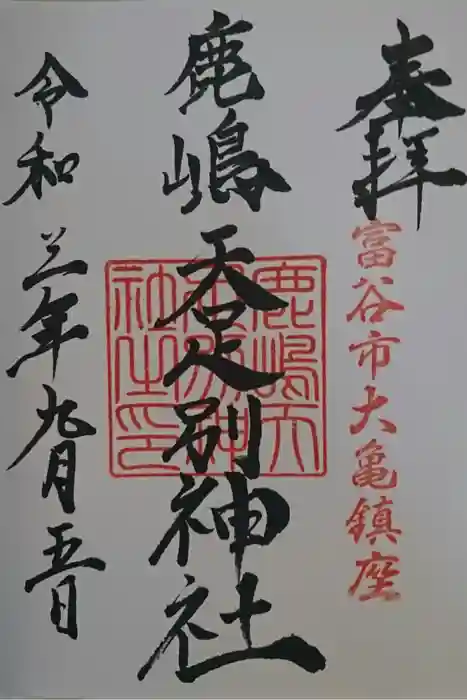 奉拝
富谷市大亀鎮座
鹿嶋天足別神社
鹿嶋天足別神社之印
令和三年九月五日